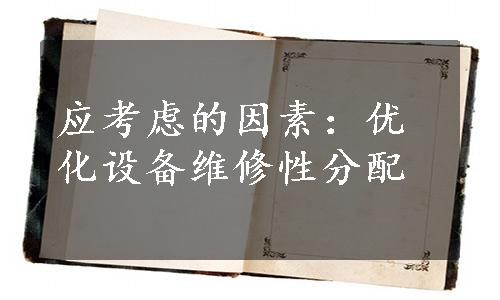 应考虑的因素：优
化设备维修性分配